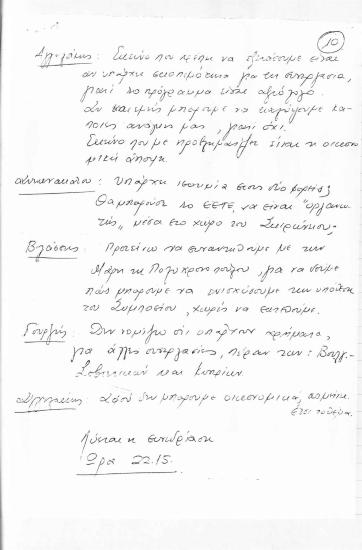 10
Αγγελάκης: Εκείνο που πρέπει να εξετάσουμε είναι
αν υπάρχει σκοπιμότητα για τη συνεργασία,
γιατί το πρόγραμμα είναι αξιόλογο.
και εμείς μπορούμε να καλύψουμε κά-
ποιες ανάγκες μας, γιατί όχι.
Εκείνο που με προβληματίζει είναι η οικονο-
μική άποψη.
Υπάρχει ισοτιμία στους δύο φορείς;
Θα μπορούσε το ΕΕΤΕ να είναι "οργανω-
τής" μέσα στο χώρο του
Βλάσσης: Προτείνω να συναντηθούμε με την
Μάρη τη Πολυχρονοπούλου, για να δούμε
πώς μπορούμε να ενισχύσουμε την υπόθεση
του Συμποσίου, χωρίς να εκτεθούμε.
Γουργής: Δεν νομίζω ότι υπάρχουν χρήματα,
για άλλες συνεργασίες, πέραν των: Βουλγ.-
Σοβιετικών και Κυπρίων.
Αγγελάκης: Αφού δεν μπορούμε οικονομικά,
έτσι το θέμα.
Λύεται η συνεδρίαση
Ώρα 22.15.